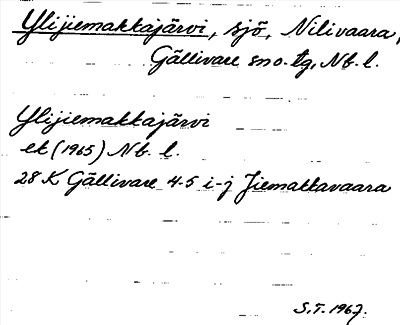 Ylijiemakkajärvi, sjö, Nilivaara,
Gällivare sn o. tg, Nb. l.
Ylijiemakkajärvi
ek (1965) Nb. l.
28 K Gällivare 4-5 i-j Jiemakkavaara
S.T. 1967.